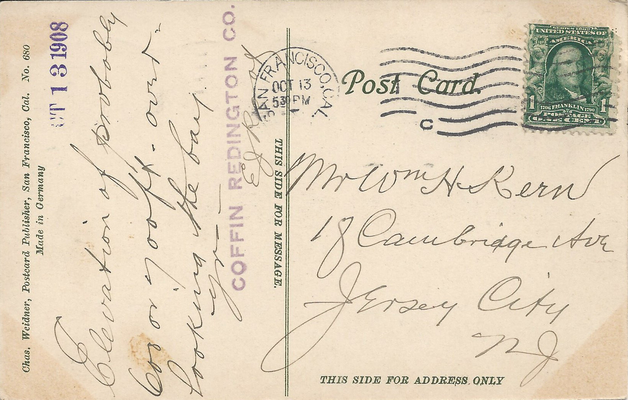 Chas. Weidner, Postcard Publisher, San Francisco, Cal. No. 680
Made in Germany
CT 13 1908
Elevation of probably
600 or 700 ft. over-
looking the bay.
COFFIN REDINGTON CO.
THIS SIDE FOR MESSAGE.
SAN FRANCISCO, CAL.
OCT 13
530 PM
Post Card.
C
UNITED STATES OF
AMERICA
1 FRANKLIN 1
POSTAGE
ONE CENT
Mr Wm H Kern
18 Cambridge Ave
Jersey City
NJ
THIS SIDE FOR ADDRESS ONLY